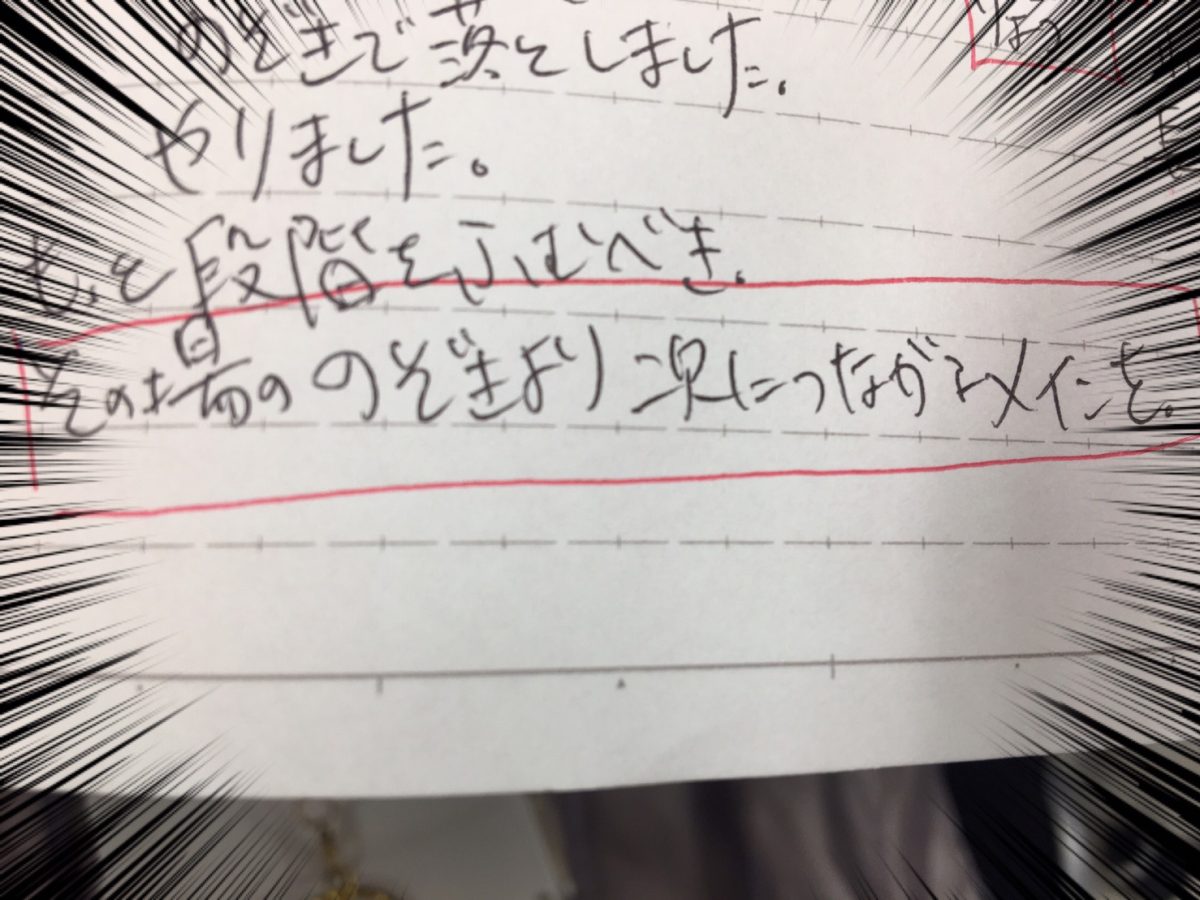 のぞきで落としました。
やりました。
もっと段階をふむべき。
その場ののぞきより次につながるメインを。